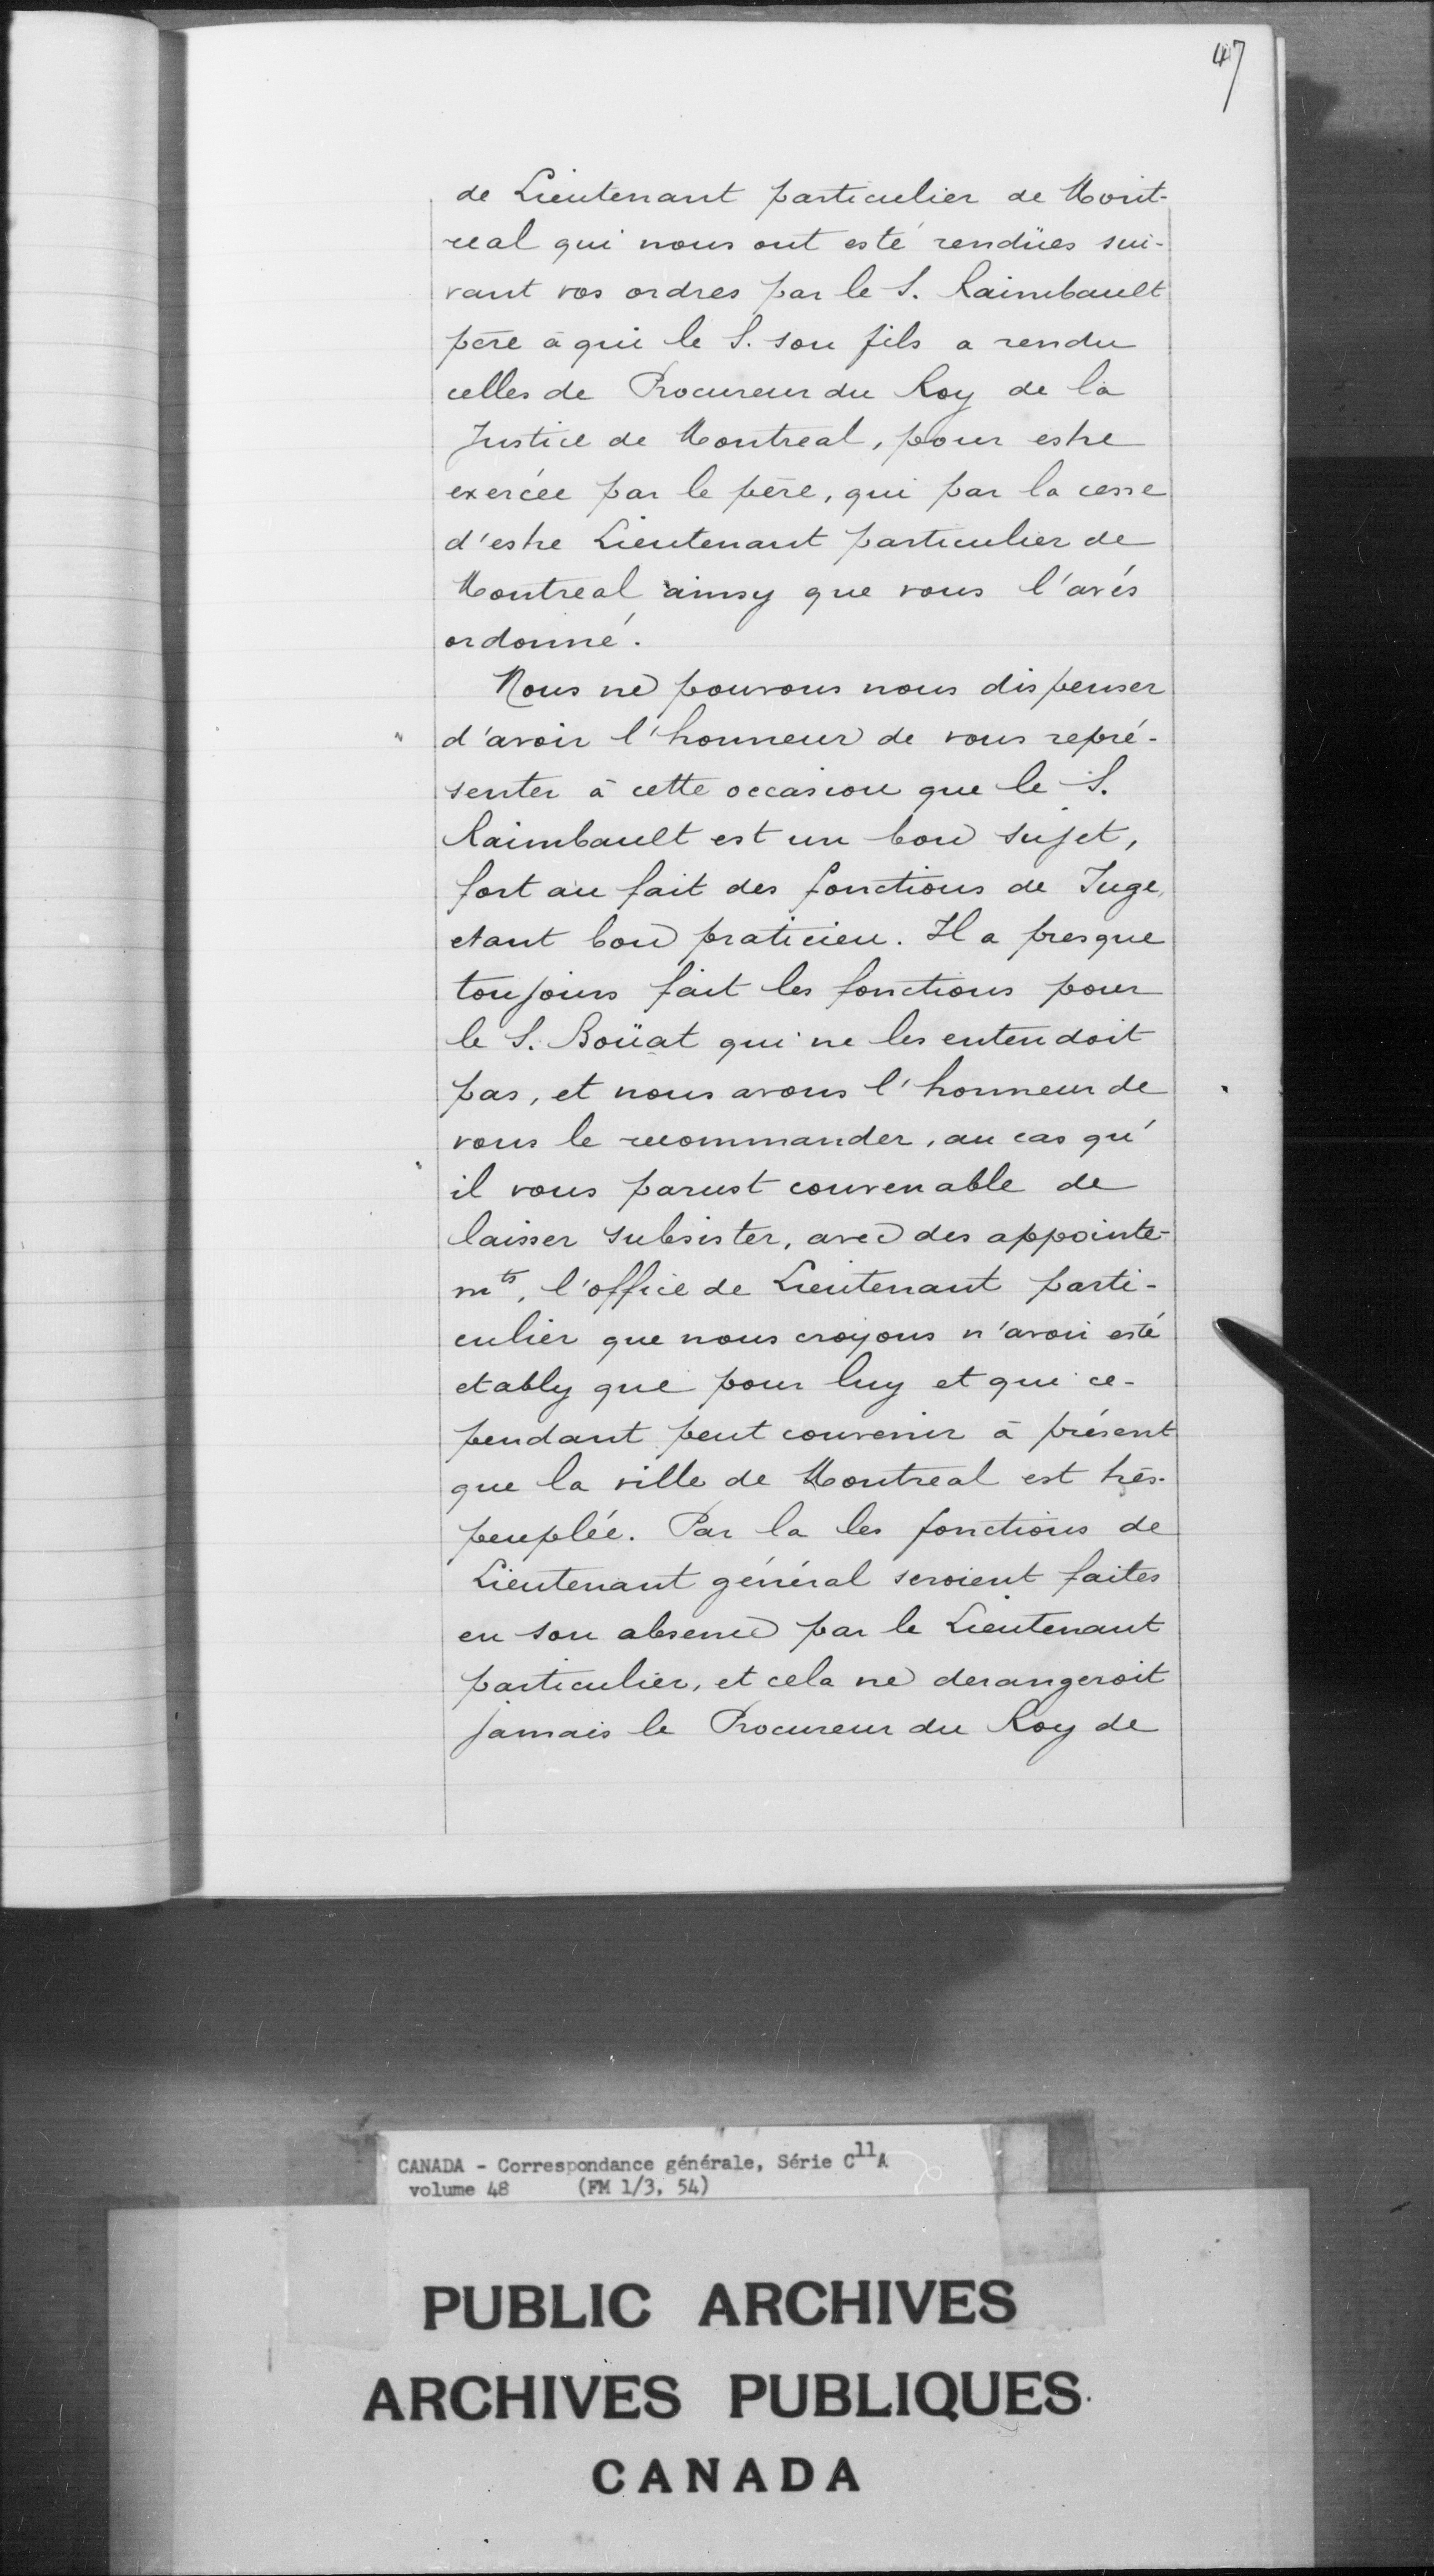 47
de Lieutenant particulier de Mont-
real qui nous ont esté rendües sui-
vant vos ordres par le S. Raimbault
père à qui le S. son fils a rendu
celles de Procureur du Roy de la
Justice de Montreal, pour estre
exercée par le père, qui par la cesse
d'estre Lieutenant particulier de
Montreal ainsy que vous l'avés
ordonné.
Nous ne pouvons nous dispenser
d'avoir l'honneur de vous repré-
senter à cette occasion que le S.
Raimbault est un bon sujet,
fort au fait des fonctions de Juge,
etant bon praticien. Il a presque
toujours fait les fonctions pour
le S. Boüat qui ne les entendoit
pas, et nous avons l'honneur de
vous le recommander, au cas qu'
il vous parust convenable de
laisser subsister, avec des appointe-
mts, l'office de Lieutenant parti-
culier que nous croyons n'avoir esté
etably que pour luy et qui ce-
pendant peut convenir à présent
que la ville de Montreal est très-
peuplée. Par la les fonctions de
Lieutenant général seroient faites
en son absence par le Lieutenant
particulier, et cela ne derangeroit
jamais le Procureur du Roy de
CANADA - Correspondance générale, Série C11A
volume 48 (FM 1/3, 54)
PUBLIC ARCHIVES
ARCHIVES PUBLIQUES
CANADA